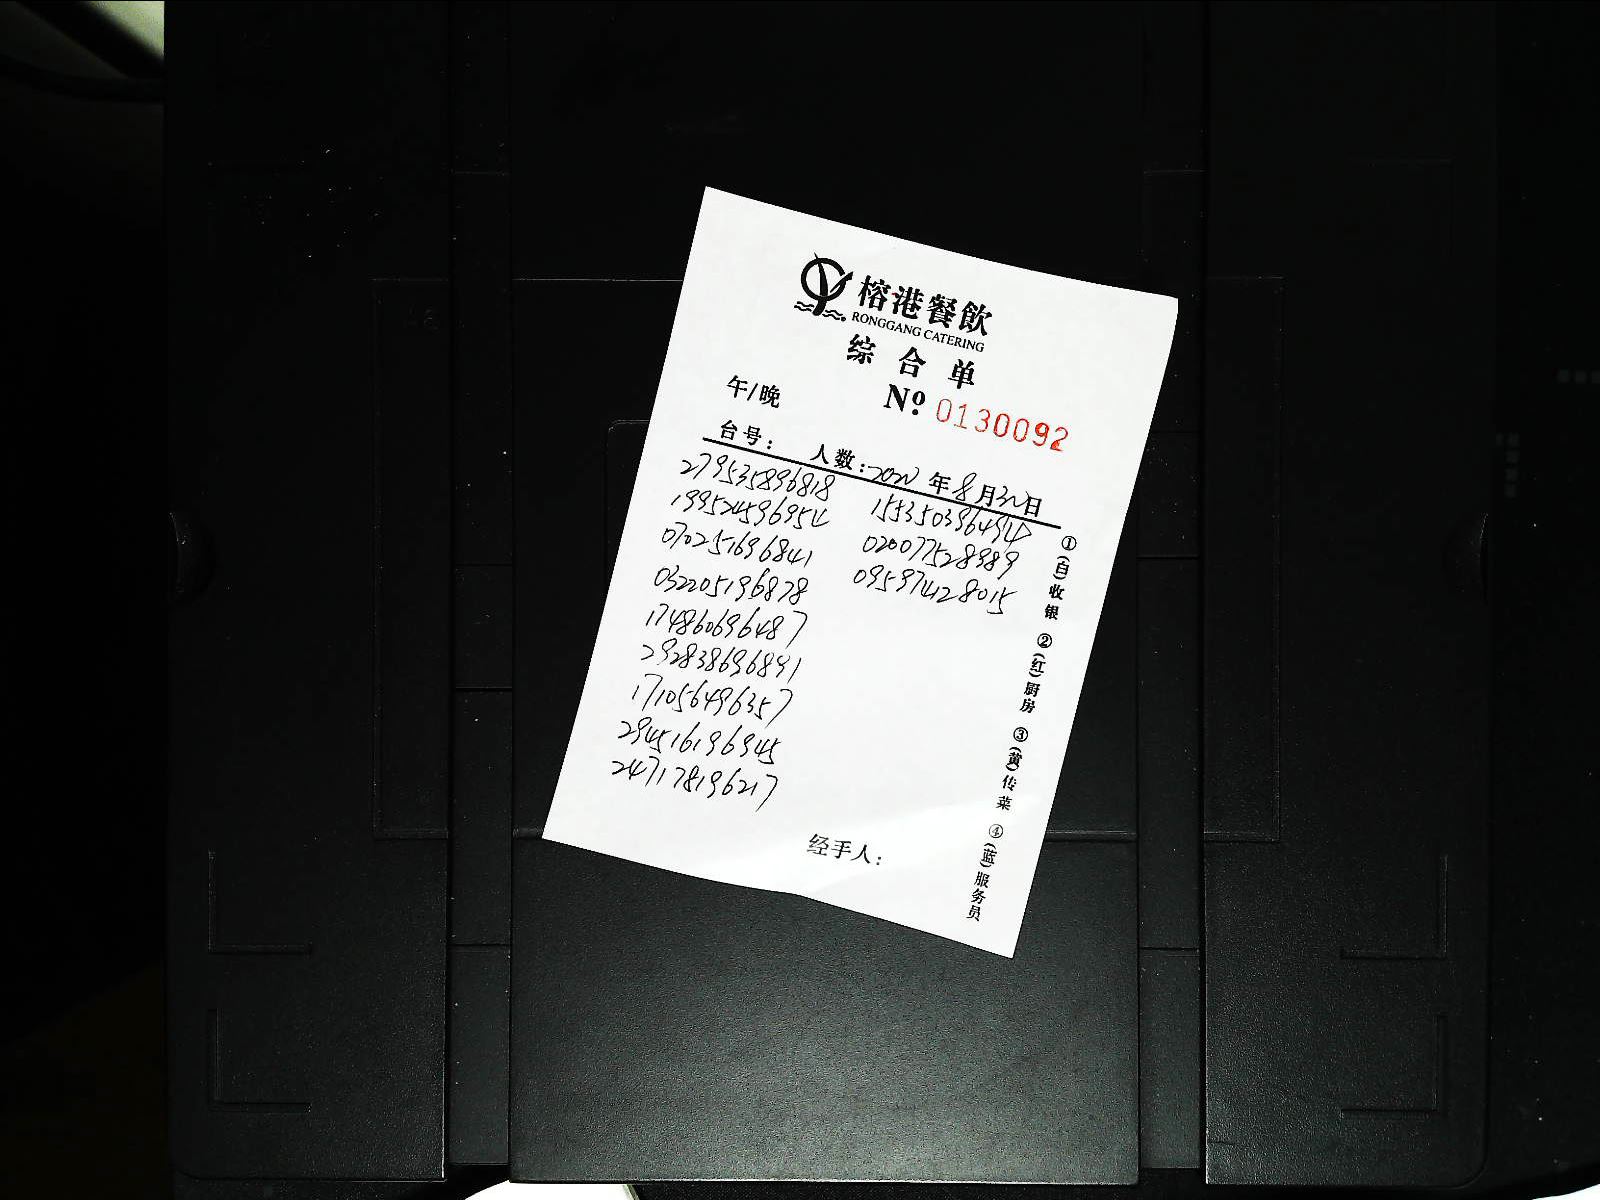 榕港餐飲
RONGGANG CATERING
综合单
午/晚
Nº 0130092
台号: 人数: 2022年8月30日
279535896818
199524596954
070251696841
032205196878
174860696487
292838696891
171056496357
294516196945
247178196217
155350396494
020077528989
095974128015
①(白)收银 ②(红)厨房 ③(黄)传菜 ④(蓝)服务员
经手人: